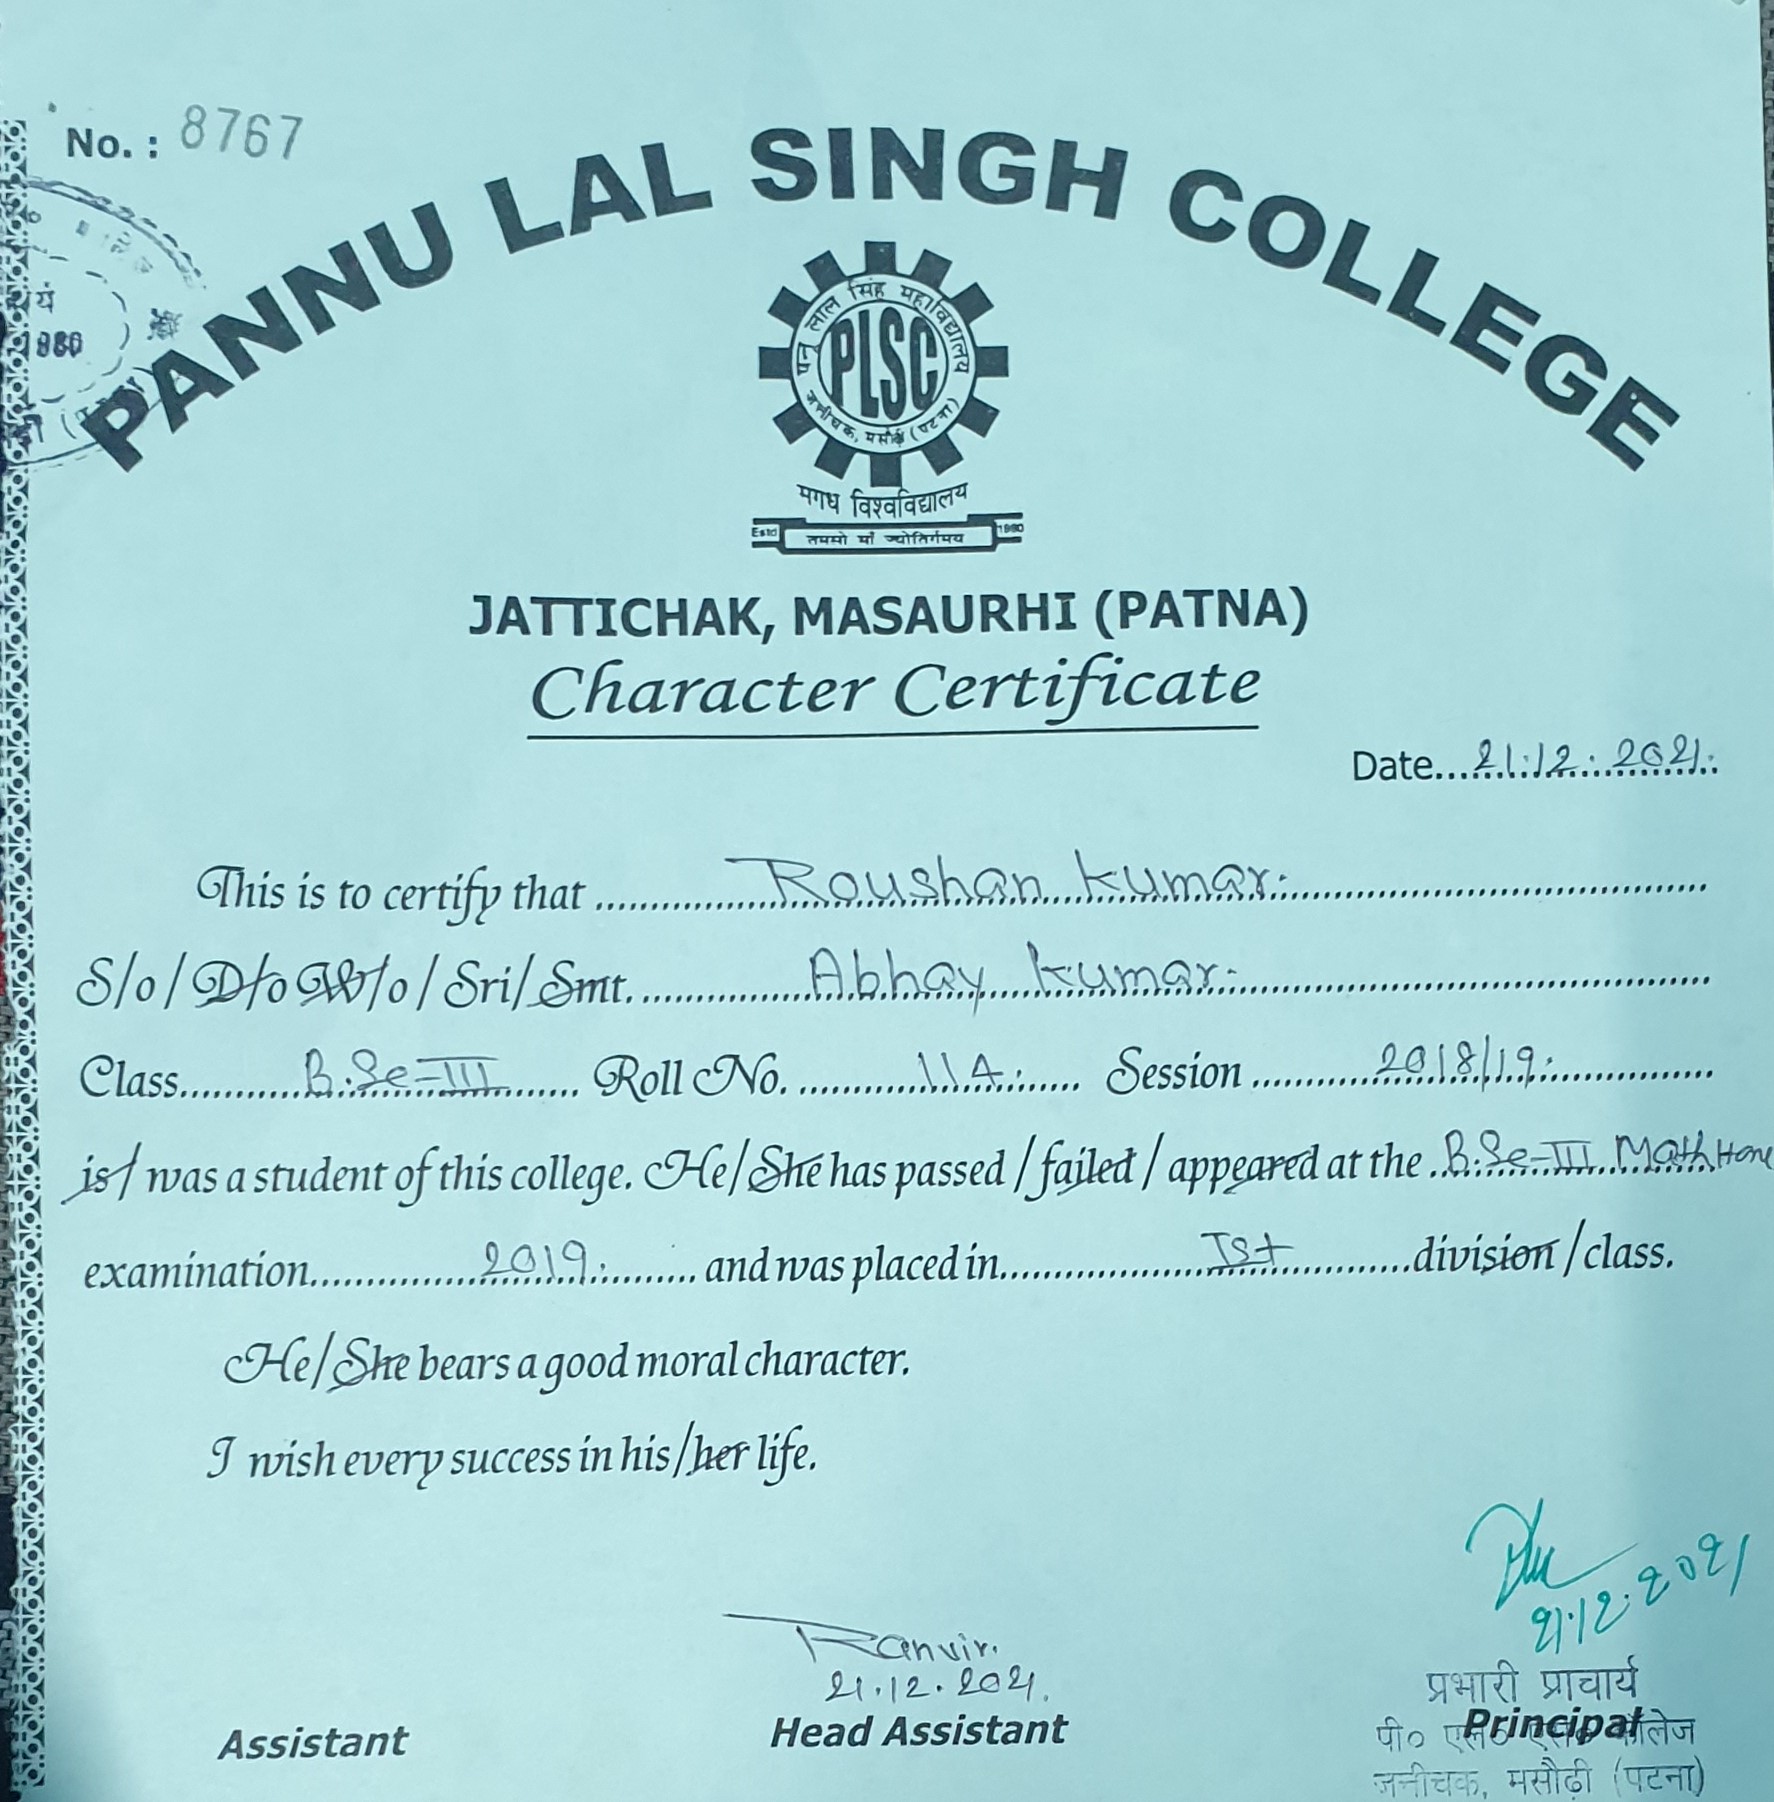 No. : 8767
PANNU LAL SINGH COLLEGE
पन्नू लाल सिंह महाविद्यालय
PLSC
जत्तीचक, मसौढ़ी (पटना)
मगध विश्वविद्यालय
Estd 1980
तमसो माँ ज्योतिर्गमय
1980
JATTICHAK, MASAURHI (PATNA)
Character Certificate
Date...21.12.2021.
This is to certify that Roushan Kumar.
S/o / D/o W/o / Sri/ Smt. Abhay Kumar.
Class B.Sc-III Roll No. 114. Session 2018/19.
is/ was a student of this college. He/She has passed / failed / appeared at the B.Sc-III Math Hons
examination 2019. and was placed in Ist division / class.
He/She bears a good moral character.
I wish every success in his/her life.
21.12.2021
Ranvir.
21.12.2021.
प्रभारी प्राचार्य
Assistant Head Assistant Principal
पी० एल० एस० कॉलेज
जत्तीचक, मसौढ़ी (पटना)